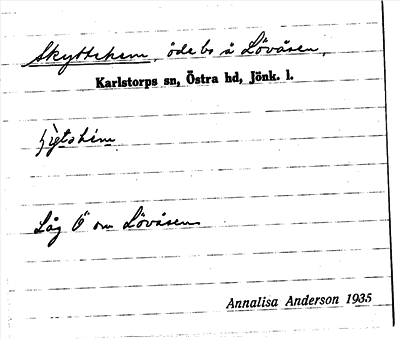 Skyttehem, öde bs å Lövåsen,
Karlstorps sn, Östra hd, Jönk. l.
Låg Ö om Lövåsen
Annalisa Anderson 1935